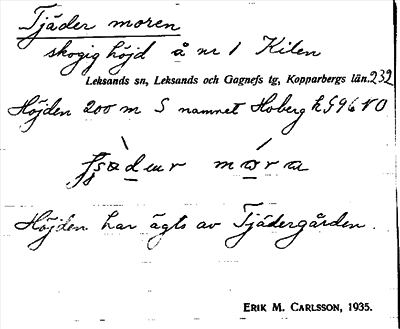 Tjäder moren
skogig höjd å nr 1 Kilen
Leksands sn, Leksands och Gagnefs tg, Kopparbergs län. 232
Höjden 200 m S namnet Hoberg k G96 VO
mora
Höjden har ägts av Tjädergården.
ERIK M. CARLSSON, 1935.